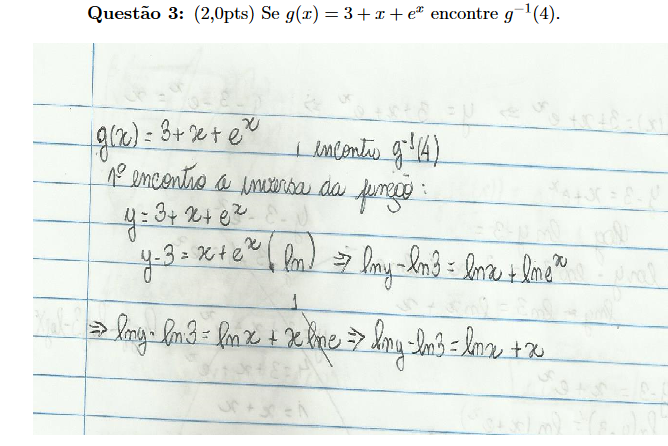 Questão 3: (2,0pts) Se g(x) = 3 + x + eˣ encontre g⁻¹(4).
g(x) = 3 + x + eˣ , encontro g⁻¹(4)
1º encontro a inversa da função:
y = 3 + x + eˣ
y - 3 = x + eˣ (ln) ⇒ ln y - ln 3 = ln x + ln eˣ
1
⇒ ln y - ln 3 = ln x + x ln e ⇒ ln y - ln 3 = ln x + x